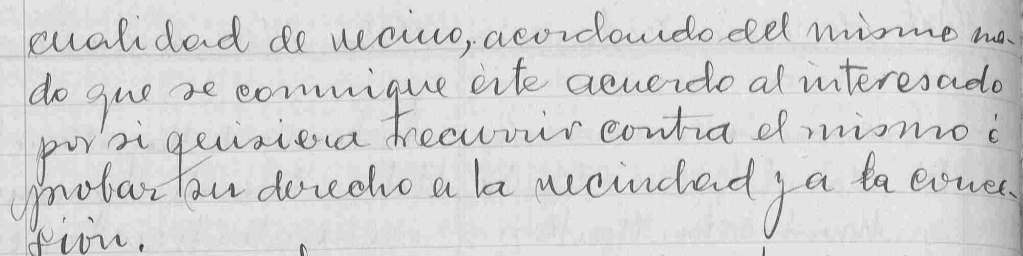 cualidad de vecino, acordando del mismo mo-
do que se comunique éste acuerdo al interesado
por si quisiera recurrir contra el mismo i
probar su derecho a la vecindad y a la conce-
sión.